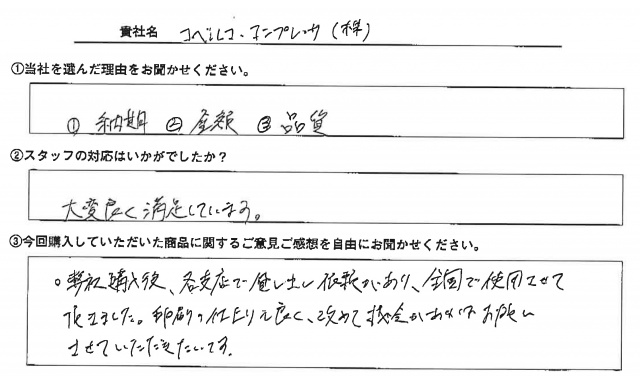 貴社名 コベルコ・コンプレッサ（株）
①当社を選んだ理由をお聞かせください。
① 納期 ② 金額 ③ 品質
②スタッフの対応はいかがでしたか？
大変良く満足しています。
③今回購入していただいた商品に関するご意見ご感想を自由にお聞かせください。
。弊社購入後、各支店で貸し出し依頼があり、全国で使用させて
頂きました。印刷の仕上りも良く、改めて機会があればお願い
させていただきたいです。